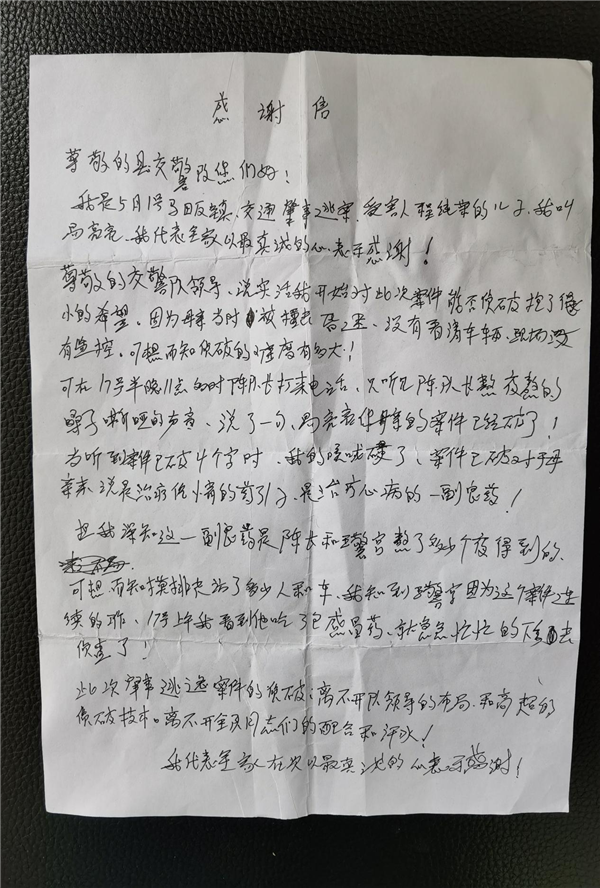 感谢信
尊敬的县交警队您们好！
我是5月1号马田镇、交通肇事逃案、受害人程纯菜的儿子，我叫
局亮亮、我代表全家以最真诚的心、表示感谢！
尊敬的交警队领导、说实话我开始对此次案件能否侦破抱了很
小的希望、因为母亲当时被撞、没有看清车辆、现场没
有监控、可想而知侦破的难度有多大！
可在17号半晚11点的时陈队长打来电话、只听见陈队长熬夜熬的
嗓子嘶哑的声音、说了一句、局亮亮你母亲的案件已经破了！
当听到案件已破4个字时、我的哽咽了、案件已破对于母
亲来说是治疗伤害的药引子、是治疗心病的一副良药！
但我深知这一副良药是陈长和王警官熬了多少个夜得到的、
可想而知摸排走访了多少人和车、我知到王警官因为这个案件连
续的工作、17号上午我看到他吃了包感冒药、就急急忙忙的下去
侦查了！
此次肇事逃逸案件的侦破、离不开队领导的布局、和高超的
侦破技术。离不开全队同志们的配合和汗水！
我代表全家人在次以最真诚的心表示感谢！